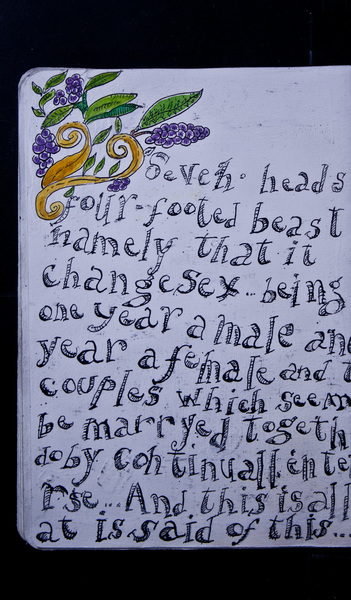 Seven heads
four-footed beast
namely that it
changesex.. being
one year a male and
year a female and t
couples which seem
be marryed togeth
doby continuall ente
rse... And this is all
at is said of this...